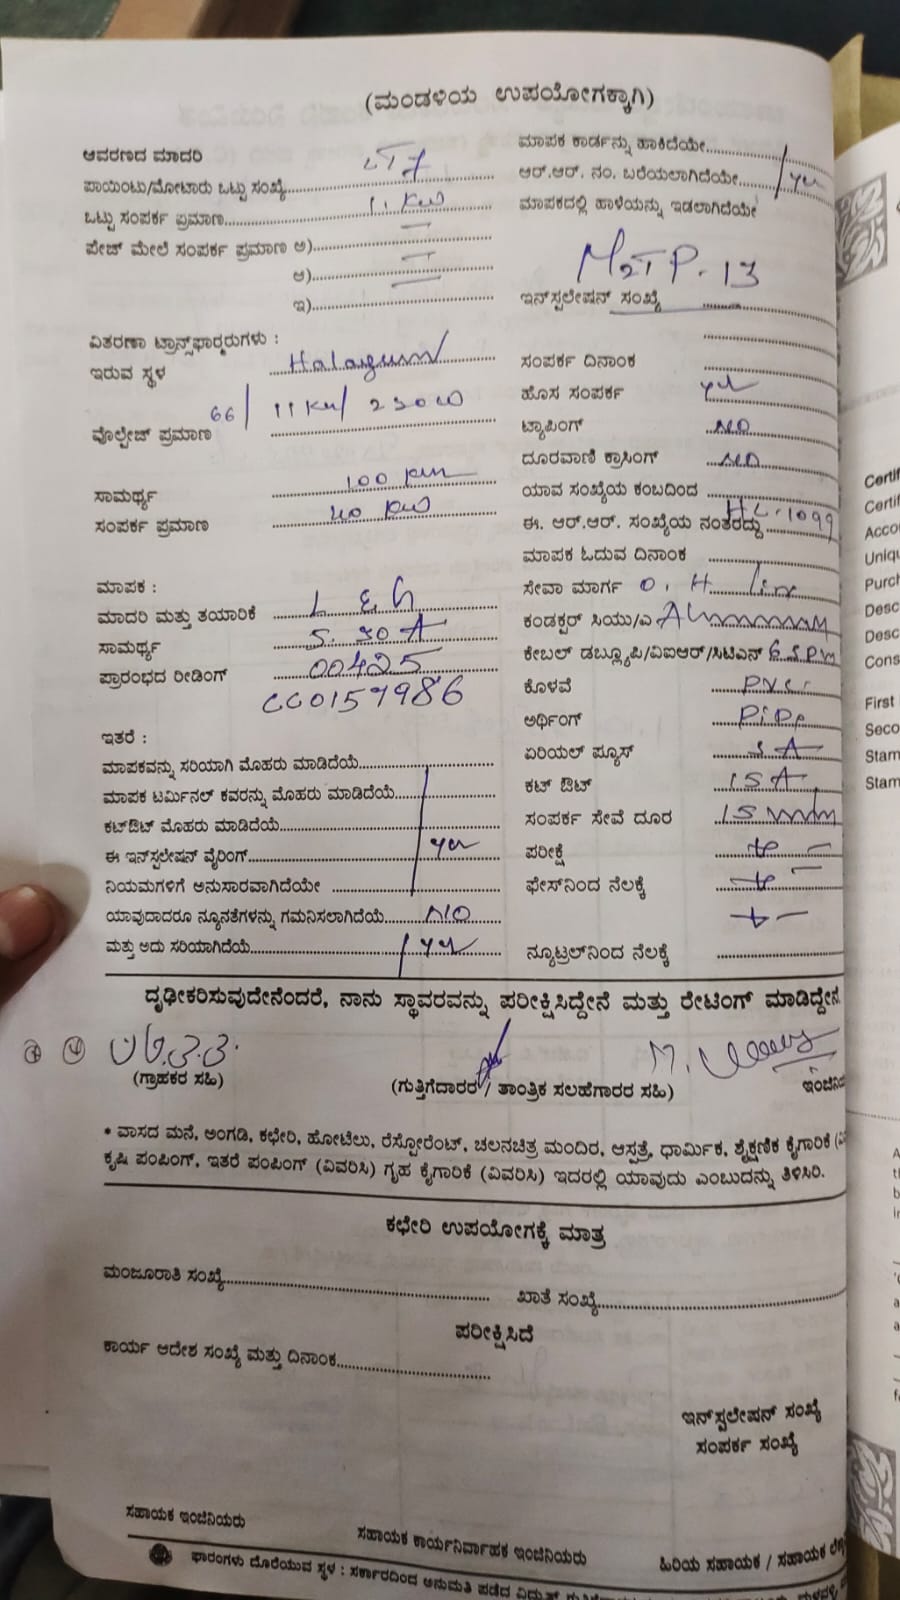 (ಮಂಡಳಿಯ ಉಪಯೋಗಕ್ಕಾಗಿ)
ಆವರಣದ ಮಾದರಿ LT7
ಪಾಯಿಂಟು/ಮೋಟಾರು ಒಟ್ಟು ಸಂಖ್ಯೆ
ಒಟ್ಟು ಸಂಪರ್ಕ ಪ್ರಮಾಣ 11 KW
ಪೇಜ್ ಮೇಲೆ ಸಂಪರ್ಕ ಪ್ರಮಾಣ ಅ) —
ಆ) —
ಇ) —
ವಿತರಣಾ ಟ್ರಾನ್ಸ್‌ಫಾರ್‍ಮರುಗಳು :
ಇರುವ ಸ್ಥಳ
66/ 11 KW/
ವೊಲ್ಟೇಜ್ ಪ್ರಮಾಣ
ಸಾಮರ್ಥ್ಯ 100
ಸಂಪರ್ಕ ಪ್ರಮಾಣ 40 KW
ಮಾಪಕ :
ಮಾದರಿ ಮತ್ತು ತಯಾರಿಕೆ L & G
ಸಾಮರ್ಥ್ಯ 5.30 A
ಪ್ರಾರಂಭದ ರೀಡಿಂಗ್ 00425
CC0157986
ಇತರೆ :
ಮಾಪಕವನ್ನು ಸರಿಯಾಗಿ ಮೊಹರು ಮಾಡಿದೆಯೆ
ಮಾಪಕ ಟರ್ಮಿನಲ್ ಕವರನ್ನು ಮೊಹರು ಮಾಡಿದೆಯೆ
ಕಟ್‌ಔಟ್ ಮೊಹರು ಮಾಡಿದೆಯೆ
ಈ ಇನ್‌ಸ್ಟಲೇಷನ್ ವೈರಿಂಗ್ yes
ನಿಯಮಗಳಿಗೆ ಅನುಸಾರವಾಗಿದೆಯೇ
ಯಾವುದಾದರೂ ನ್ಯೂನತೆಗಳನ್ನು ಗಮನಿಸಲಾಗಿದೆಯೆ NO
ಮತ್ತು ಅದು ಸರಿಯಾಗಿದೆಯೆ yes
ಮಾಪಕ ಕಾರ್ಡನ್ನು ಹಾಕಿದೆಯೇ
ಆರ್.ಆರ್. ನಂ. ಬರೆಯಲಾಗಿದೆಯೇ yes
ಮಾಪಕದಲ್ಲಿ ಹಾಳೆಯನ್ನು ಇಡಲಾಗಿದೆಯೇ
M2TP-13
ಇನ್‌ಸ್ಟಲೇಷನ್ ಸಂಖ್ಯೆ
ಸಂಪರ್ಕ ದಿನಾಂಕ
ಹೊಸ ಸಂಪರ್ಕ yes
ಟ್ಯಾಪಿಂಗ್ NO
ದೂರವಾಣಿ ಕ್ರಾಸಿಂಗ್ NO
ಯಾವ ಸಂಖ್ಯೆಯ ಕಂಬದಿಂದ
ಈ. ಆರ್.ಆರ್. ಸಂಖ್ಯೆಯ ನಂತರದ್ದು HL-1099
ಮಾಪಕ ಓದುವ ದಿನಾಂಕ
ಸೇವಾ ಮಾರ್ಗ O.H line
ಕಂಡಕ್ಟರ್ ಸಿಯು/ಎ
ಕೇಬಲ್ ಡಬ್ಲ್ಯೂಪಿ/ವಿಐಆರ್/ಸಿಟಿಎಸ್
ಕೊಳವೆ PVC
ಅರ್ಥಿಂಗ್ Pipe
ಏರಿಯಲ್ ಫ್ಯೂಸ್ 5 A
ಕಟ್ ಔಟ್ 15 A
ಸಂಪರ್ಕ ಸೇವೆ ದೂರ 15
ಪರೀಕ್ಷೆ
ಫೇಸ್‌ನಿಂದ ನೆಲಕ್ಕೆ
ನ್ಯೂಟ್ರಲ್‌ನಿಂದ ನೆಲಕ್ಕೆ
ದೃಢೀಕರಿಸುವುದೇನೆಂದರೆ, ನಾನು ಸ್ಥಾವರವನ್ನು ಪರೀಕ್ಷಿಸಿದ್ದೇನೆ ಮತ್ತು ರೇಟಿಂಗ್ ಮಾಡಿದ್ದೇನೆ
(ಗ್ರಾಹಕರ ಸಹಿ)
(ಗುತ್ತಿಗೆದಾರರ / ತಾಂತ್ರಿಕ ಸಲಹೆಗಾರರ ಸಹಿ)
ಇಂಜಿನಿಯ
* ವಾಸದ ಮನೆ, ಅಂಗಡಿ, ಕಛೇರಿ, ಹೋಟೆಲು, ರೆಸ್ಟೋರೆಂಟ್, ಚಲನಚಿತ್ರ ಮಂದಿರ, ಆಸ್ಪತ್ರೆ, ಧಾರ್ಮಿಕ, ಶೈಕ್ಷಣಿಕ ಕೈಗಾರಿಕೆ
ಕೃಷಿ ಪಂಪಿಂಗ್, ಇತರೆ ಪಂಪಿಂಗ್ (ವಿವರಿಸಿ) ಗೃಹ ಕೈಗಾರಿಕೆ (ವಿವರಿಸಿ) ಇದರಲ್ಲಿ ಯಾವುದು ಎಂಬುದನ್ನು ತಿಳಿಸಿರಿ.
ಕಛೇರಿ ಉಪಯೋಗಕ್ಕೆ ಮಾತ್ರ
ಮಂಜೂರಾತಿ ಸಂಖ್ಯೆ
ಖಾತೆ ಸಂಖ್ಯೆ
ಪರೀಕ್ಷಿಸಿದೆ
ಕಾರ್ಯ ಆದೇಶ ಸಂಖ್ಯೆ ಮತ್ತು ದಿನಾಂಕ
ಇನ್‌ಸ್ಟಲೇಷನ್ ಸಂಖ್ಯೆ
ಸಂಪರ್ಕ ಸಂಖ್ಯೆ
ಸಹಾಯಕ ಇಂಜಿನಿಯರು
ಸಹಾಯಕ ಕಾರ್ಯನಿರ್ವಾಹಕ ಇಂಜಿನಿಯರು
ಹಿರಿಯ ಸಹಾಯಕ / ಸಹಾಯಕ
ಫಾರಂಗಳು ದೊರೆಯುವ ಸ್ಥಳ : ಸರ್ಕಾರದಿಂದ ಅನುಮತಿ ಪಡೆದ ವಿದ್ಯುತ್
Certif
Certif
Acco
Uniqu
Purch
Desc
Desc
Cons
First
Seco
Stam
Stam